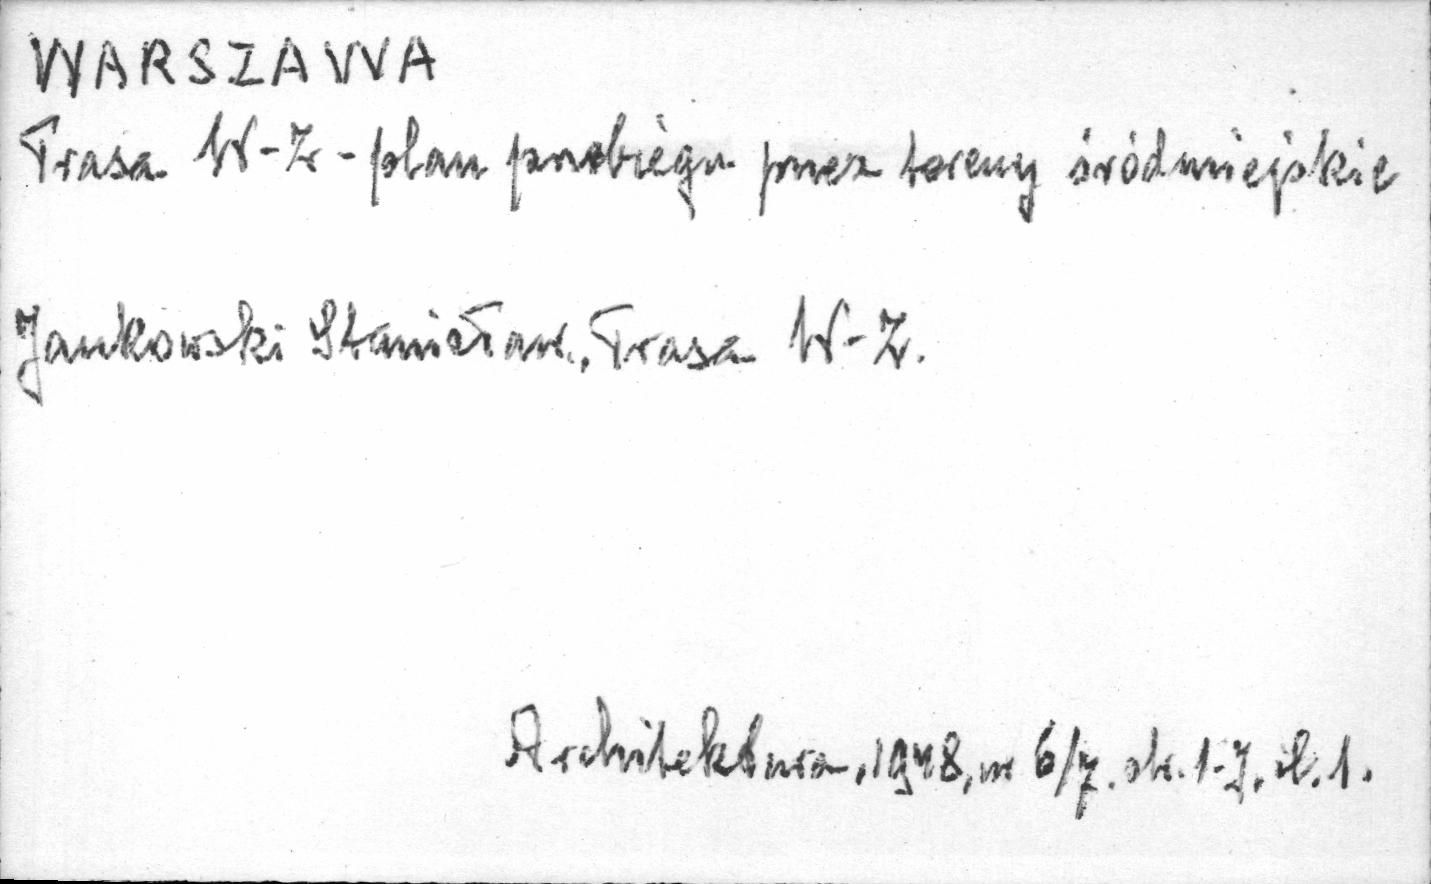 WARSZAWA
Trasa W-Z - plan przebiegu przez tereny śródmiejskie
Jankowski Stanisław., Trasa W-Z.
Architektura, 1948, nr 6/7. str. 1-7, il. 1.